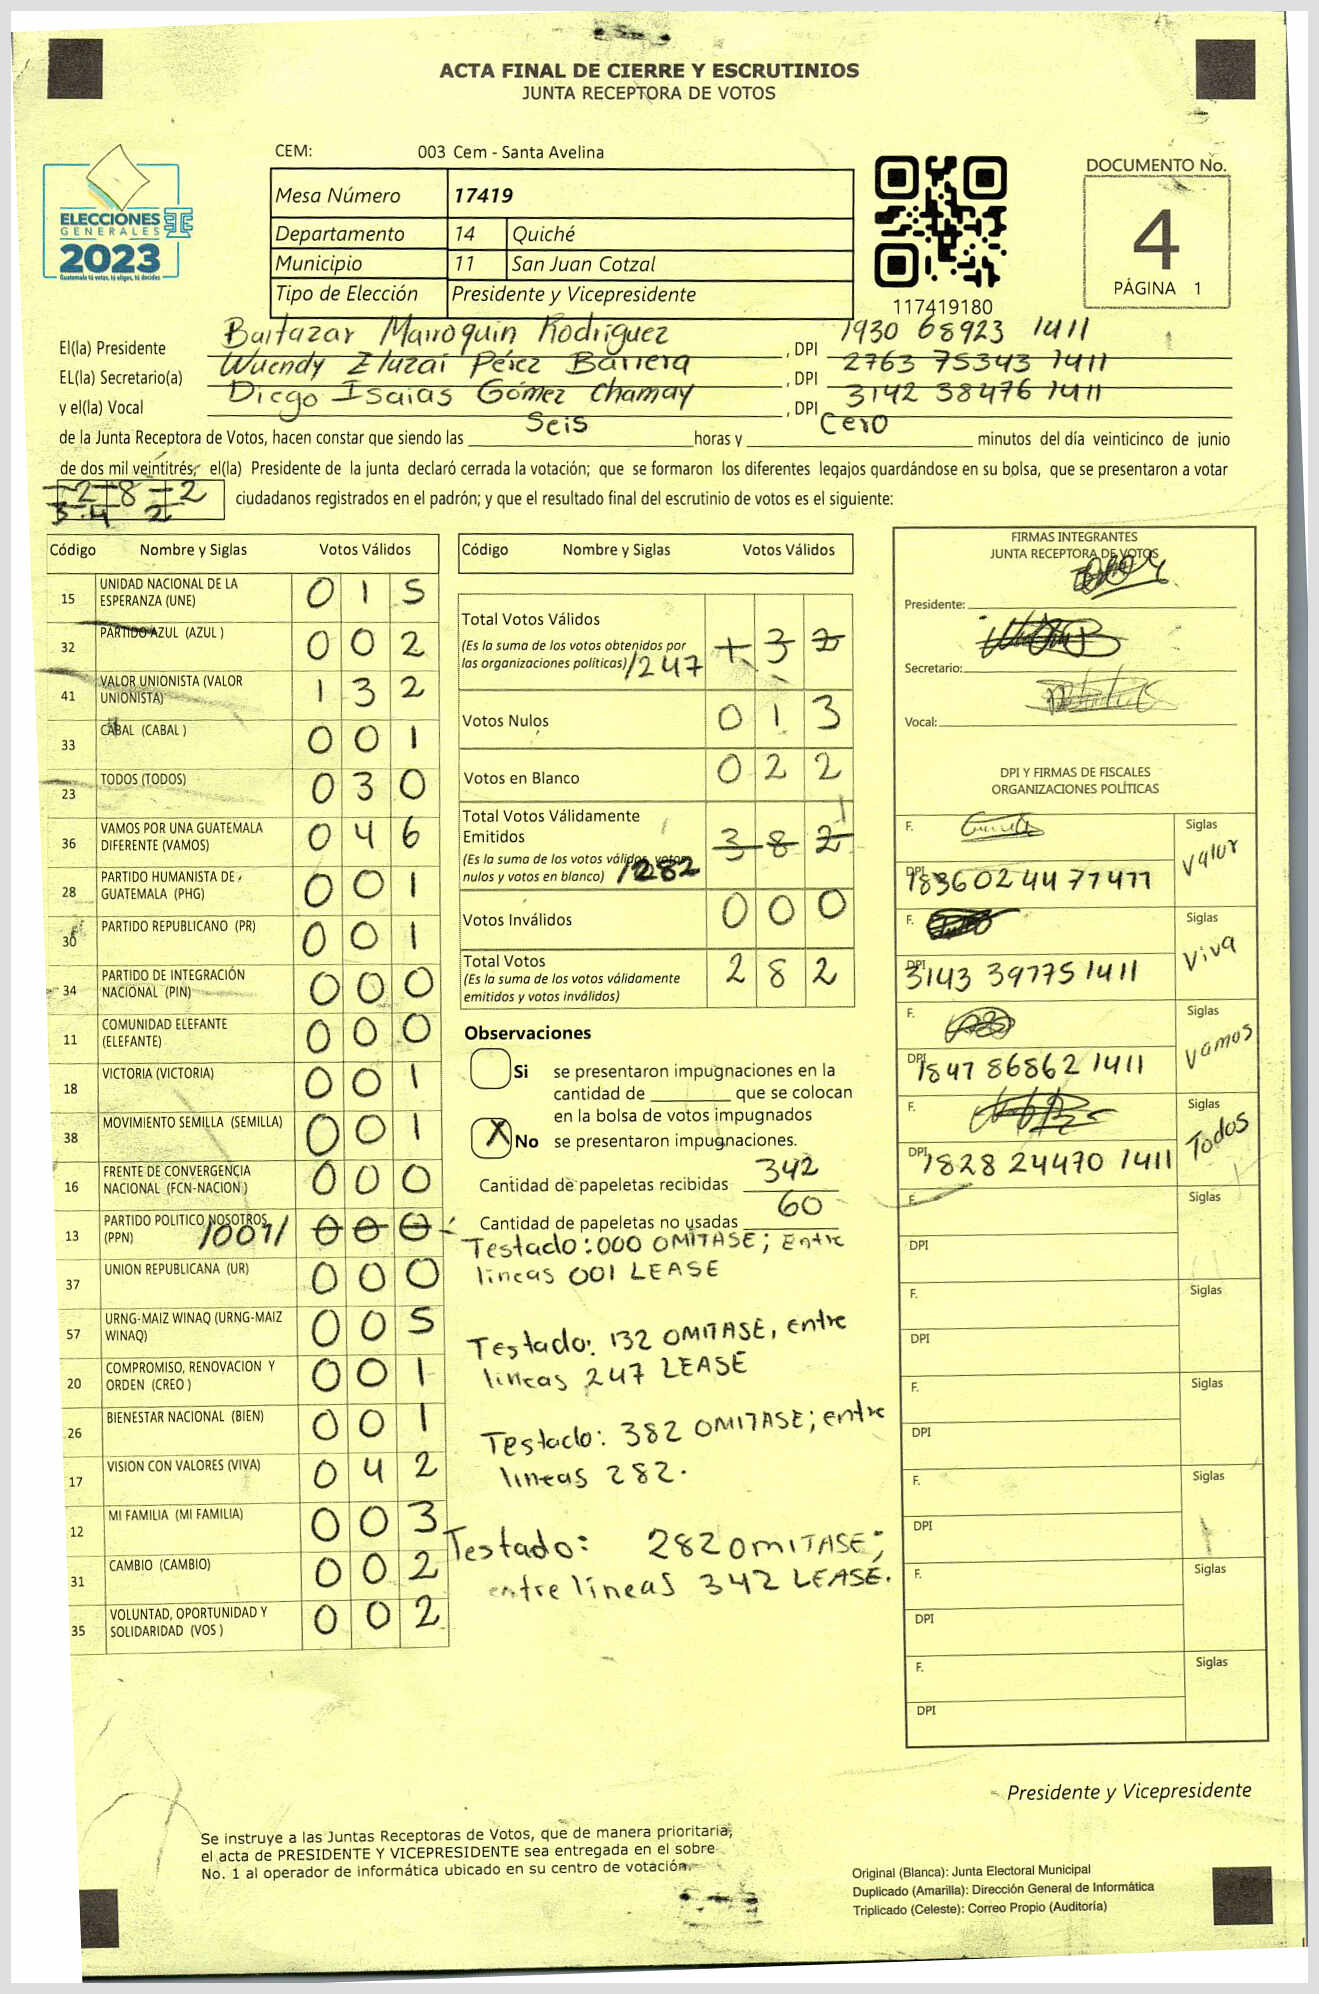 ACTA FINAL DE CIERRE Y ESCRUTINIOS
JUNTA RECEPTORA DE VOTOS
CEM: 003 Cem - Santa Avelina
ELECCIONES
GENERALES
2023
Guatemala tú votas, tú eliges, tú decides
Mesa Número 17419
Departamento 14 Quiché
Municipio 11 San Juan Cotzal
Tipo de Elección Presidente y Vicepresidente
117419180
DOCUMENTO No.
4
PÁGINA 1
El(la) Presidente Baltazar Marroquin Rodriguez , DPI 1930 68923 1411
EL(la) Secretario(a) Wuendy Eluzai Pérez Barrera , DPI 2763 75343 1411
y el(la) Vocal Diego Isaias Gómez Chamay , DPI 3142 38476 1411
de la Junta Receptora de Votos, hacen constar que siendo las Seis horas y Cero minutos del día veinticinco de junio
de dos mil veintitrés, el(la) Presidente de la junta declaró cerrada la votación; que se formaron los diferentes legajos guardándose en su bolsa, que se presentaron a votar
2 8 2
3 4 2
ciudadanos registrados en el padrón; y que el resultado final del escrutinio de votos es el siguiente:
Código Nombre y Siglas Votos Válidos
15 UNIDAD NACIONAL DE LA ESPERANZA (UNE) 0 1 5
32 PARTIDO AZUL (AZUL ) 0 0 2
41 VALOR UNIONISTA (VALOR UNIONISTA) 1 3 2
33 CABAL (CABAL ) 0 0 1
23 TODOS (TODOS) 0 3 0
36 VAMOS POR UNA GUATEMALA DIFERENTE (VAMOS) 0 4 6
28 PARTIDO HUMANISTA DE GUATEMALA (PHG) 0 0 1
30 PARTIDO REPUBLICANO (PR) 0 0 1
34 PARTIDO DE INTEGRACIÓN NACIONAL (PIN) 0 0 0
11 COMUNIDAD ELEFANTE (ELEFANTE) 0 0 0
18 VICTORIA (VICTORIA) 0 0 1
38 MOVIMIENTO SEMILLA (SEMILLA) 0 0 1
16 FRENTE DE CONVERGENCIA NACIONAL (FCN-NACION ) 0 0 0
13 PARTIDO POLITICO NOSOTROS (PPN) /001/ 0 0 0
37 UNION REPUBLICANA (UR) 0 0 0
57 URNG-MAIZ WINAQ (URNG-MAIZ WINAQ) 0 0 5
20 COMPROMISO, RENOVACION Y ORDEN (CREO ) 0 0 1
26 BIENESTAR NACIONAL (BIEN) 0 0 1
17 VISION CON VALORES (VIVA) 0 4 2
12 MI FAMILIA (MI FAMILIA) 0 0 3
31 CAMBIO (CAMBIO) 0 0 2
35 VOLUNTAD, OPORTUNIDAD Y SOLIDARIDAD (VOS ) 0 0 2
Código Nombre y Siglas Votos Válidos
Total Votos Válidos
(Es la suma de los votos obtenidos por
las organizaciones políticas) /247 1 3 2
Votos Nulos 0 1 3
Votos en Blanco 0 2 2
Total Votos Válidamente
Emitidos 3 8 2
(Es la suma de los votos válidos, votos
nulos y votos en blanco) /282
Votos Inválidos 0 0 0
Total Votos 2 8 2
(Es la suma de los votos válidamente
emitidos y votos inválidos)
Observaciones
Si se presentaron impugnaciones en la
cantidad de ________ que se colocan
en la bolsa de votos impugnados
X No se presentaron impugnaciones.
Cantidad de papeletas recibidas 342
Cantidad de papeletas no usadas 60
Testado: 000 OMITASE; Entre
lineas 001 LEASE
Testado: 132 OMITASE, entre
lineas 247 LEASE
Testado: 382 OMITASE; entre
lineas 282.
Testado: 282 OMITASE;
entre lineas 342 LEASE.
FIRMAS INTEGRANTES
JUNTA RECEPTORA DE VOTOS
Presidente:
Secretario:
Vocal:
DPI Y FIRMAS DE FISCALES
ORGANIZACIONES POLÍTICAS
F. Siglas Valor
DPI 1836024477411
F. Siglas Viva
DPI 3143 39775 1411
F. Siglas Vamos
DPI 1847 86862 1411
F. Siglas Todos
DPI 1828 24470 1411
F. Siglas
DPI
F. Siglas
DPI
F. Siglas
DPI
F. Siglas
DPI
F. Siglas
DPI
F. Siglas
DPI
Presidente y Vicepresidente
Se instruye a las Juntas Receptoras de Votos, que de manera prioritaria,
el acta de PRESIDENTE Y VICEPRESIDENTE sea entregada en el sobre
No. 1 al operador de informática ubicado en su centro de votación.
Original (Blanca): Junta Electoral Municipal
Duplicado (Amarilla): Dirección General de Informática
Triplicado (Celeste): Correo Propio (Auditoría)